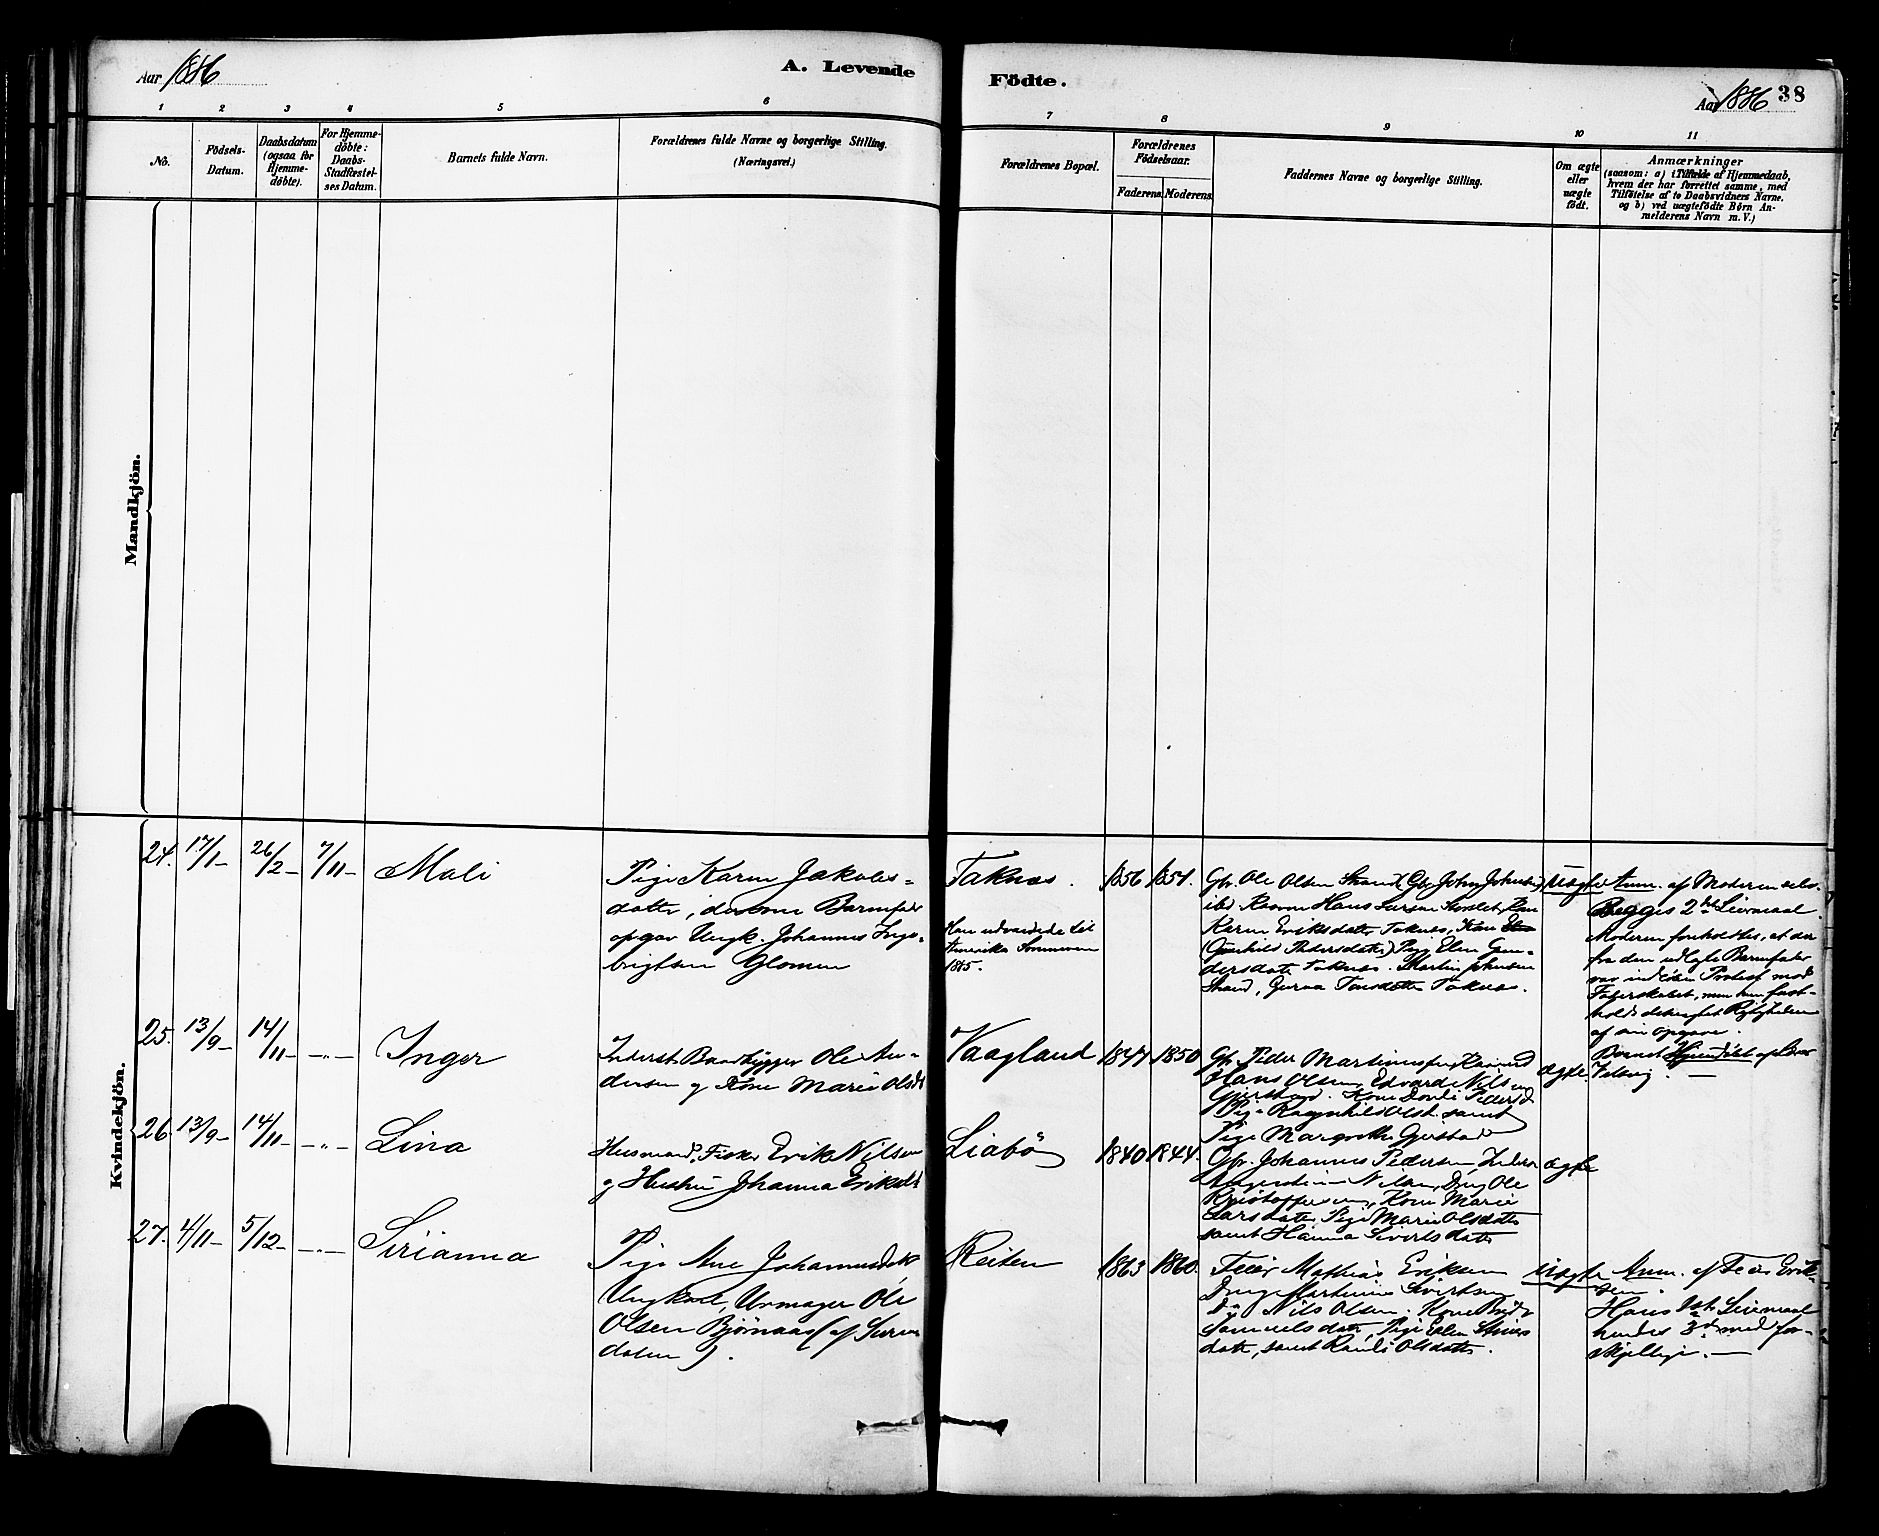 Aar 1886
A. Levende
Födte.
Aar 1886
38
1 2 3 4 5 6 7 8 9 10 11
No.
Födsels-
Datum.
Daabsdatum
(ogsaa for
Hjemme-
döbte).
For Hjemme-
döbte:
Daabs-
Stadfæstel-
ses Datum.
Barnets fulde Navn.
Forældrenes fulde Navne og borgerlige Stilling.
(Næringsvei.)
Forældrenes Bopæl.
Forældrenes
Födselsaar.
Faderens. Moderens.
Faddernes Navne og borgerlige Stilling.
Om ægte
eller
uægte
födt.
Anmærkninger
(saasom: a) i Tilfælde af Hjemmedaab,
hvem der har forrettet samme, med
Tilföielse af to Daabsvidners Navne.
og b) ved uægtefödte Börn An-
melderens Navn m. V.)
Mandkjön.
Kvindekjön.
24. 17/1- 26/2- 7/11- Mali
Pige Karen Jakobs-
datter, Barnefader
opgav Ungk. Johannes Inge-
brigtsen Glomen
Taknæs.
Han udvandrede til
Amerika Sommeren
1885.
1856 1857.
Gbr. Ole Olsen Strand, Gbr. John Johnsen
ibd. Hans Larsen
Karen Eriksdatter Taknæs, Kone
(Gunhild Pedersdatter) Pige Elen Gun-
dersdatter Taknæs. Martin Johnsen
Strand, Guroa Tøresdatter Taknæs.
uægte
Anm. af Moderen selv.
Begges 2det Leiermaal.
Moderen foreholdtes, at der
fra den udlagte Barnefader
var indløben Protest mod
Faderskabet, men hun fast-
holdt Rigtigheden
af sin Opgave.
Barnet Hjemdøbt af
25. 13/9- 14/11- -"- Inger
Inderst. Baadbygger Ole An-
dersen og Kone Marie Olsdt
Vaagland
1847 1850
Gbr. Peder Martinussen,
Hans Olsen, Edvard Nilsen
Gjerstad. Kone Dordi Pedersd
Pige Ragnhild Olsd. samt
Pige Margrethe Gjerstad
ægte.
26. 13/9- 14/11- -"- Lina
Husmand, Fisker Erik Nilsen
og Hustru Johanna Eriksdt
Liabø
1840 1844.
Gbr. Johannes Pedersen,
Nilsen, Dreng Ole
Kristoffersen, Kone Marie
Larsdatter, Pige Marie Olsdatter
samt Hanna Sivertsdatter
ægte
27. 4/11- 5/12- -"- Sirianna
Pige Ane Johannesdtr
Ungkarl, Urmager Ole
Olsen Bjørnaas (af Suren
dalen).
Reiten
1863 1860.
Feier Mathias Eriksen
Dreng Martinus Sivertsen
Do Nils Olsen. Kone
Samuelsdatter, Pige Elen
datter, samt Randi Olsdatter.
uægte
Anm. af Feier Erik-
sen.
Hans 1ste Leiermaal
hendes 3die med for-
skjellige.